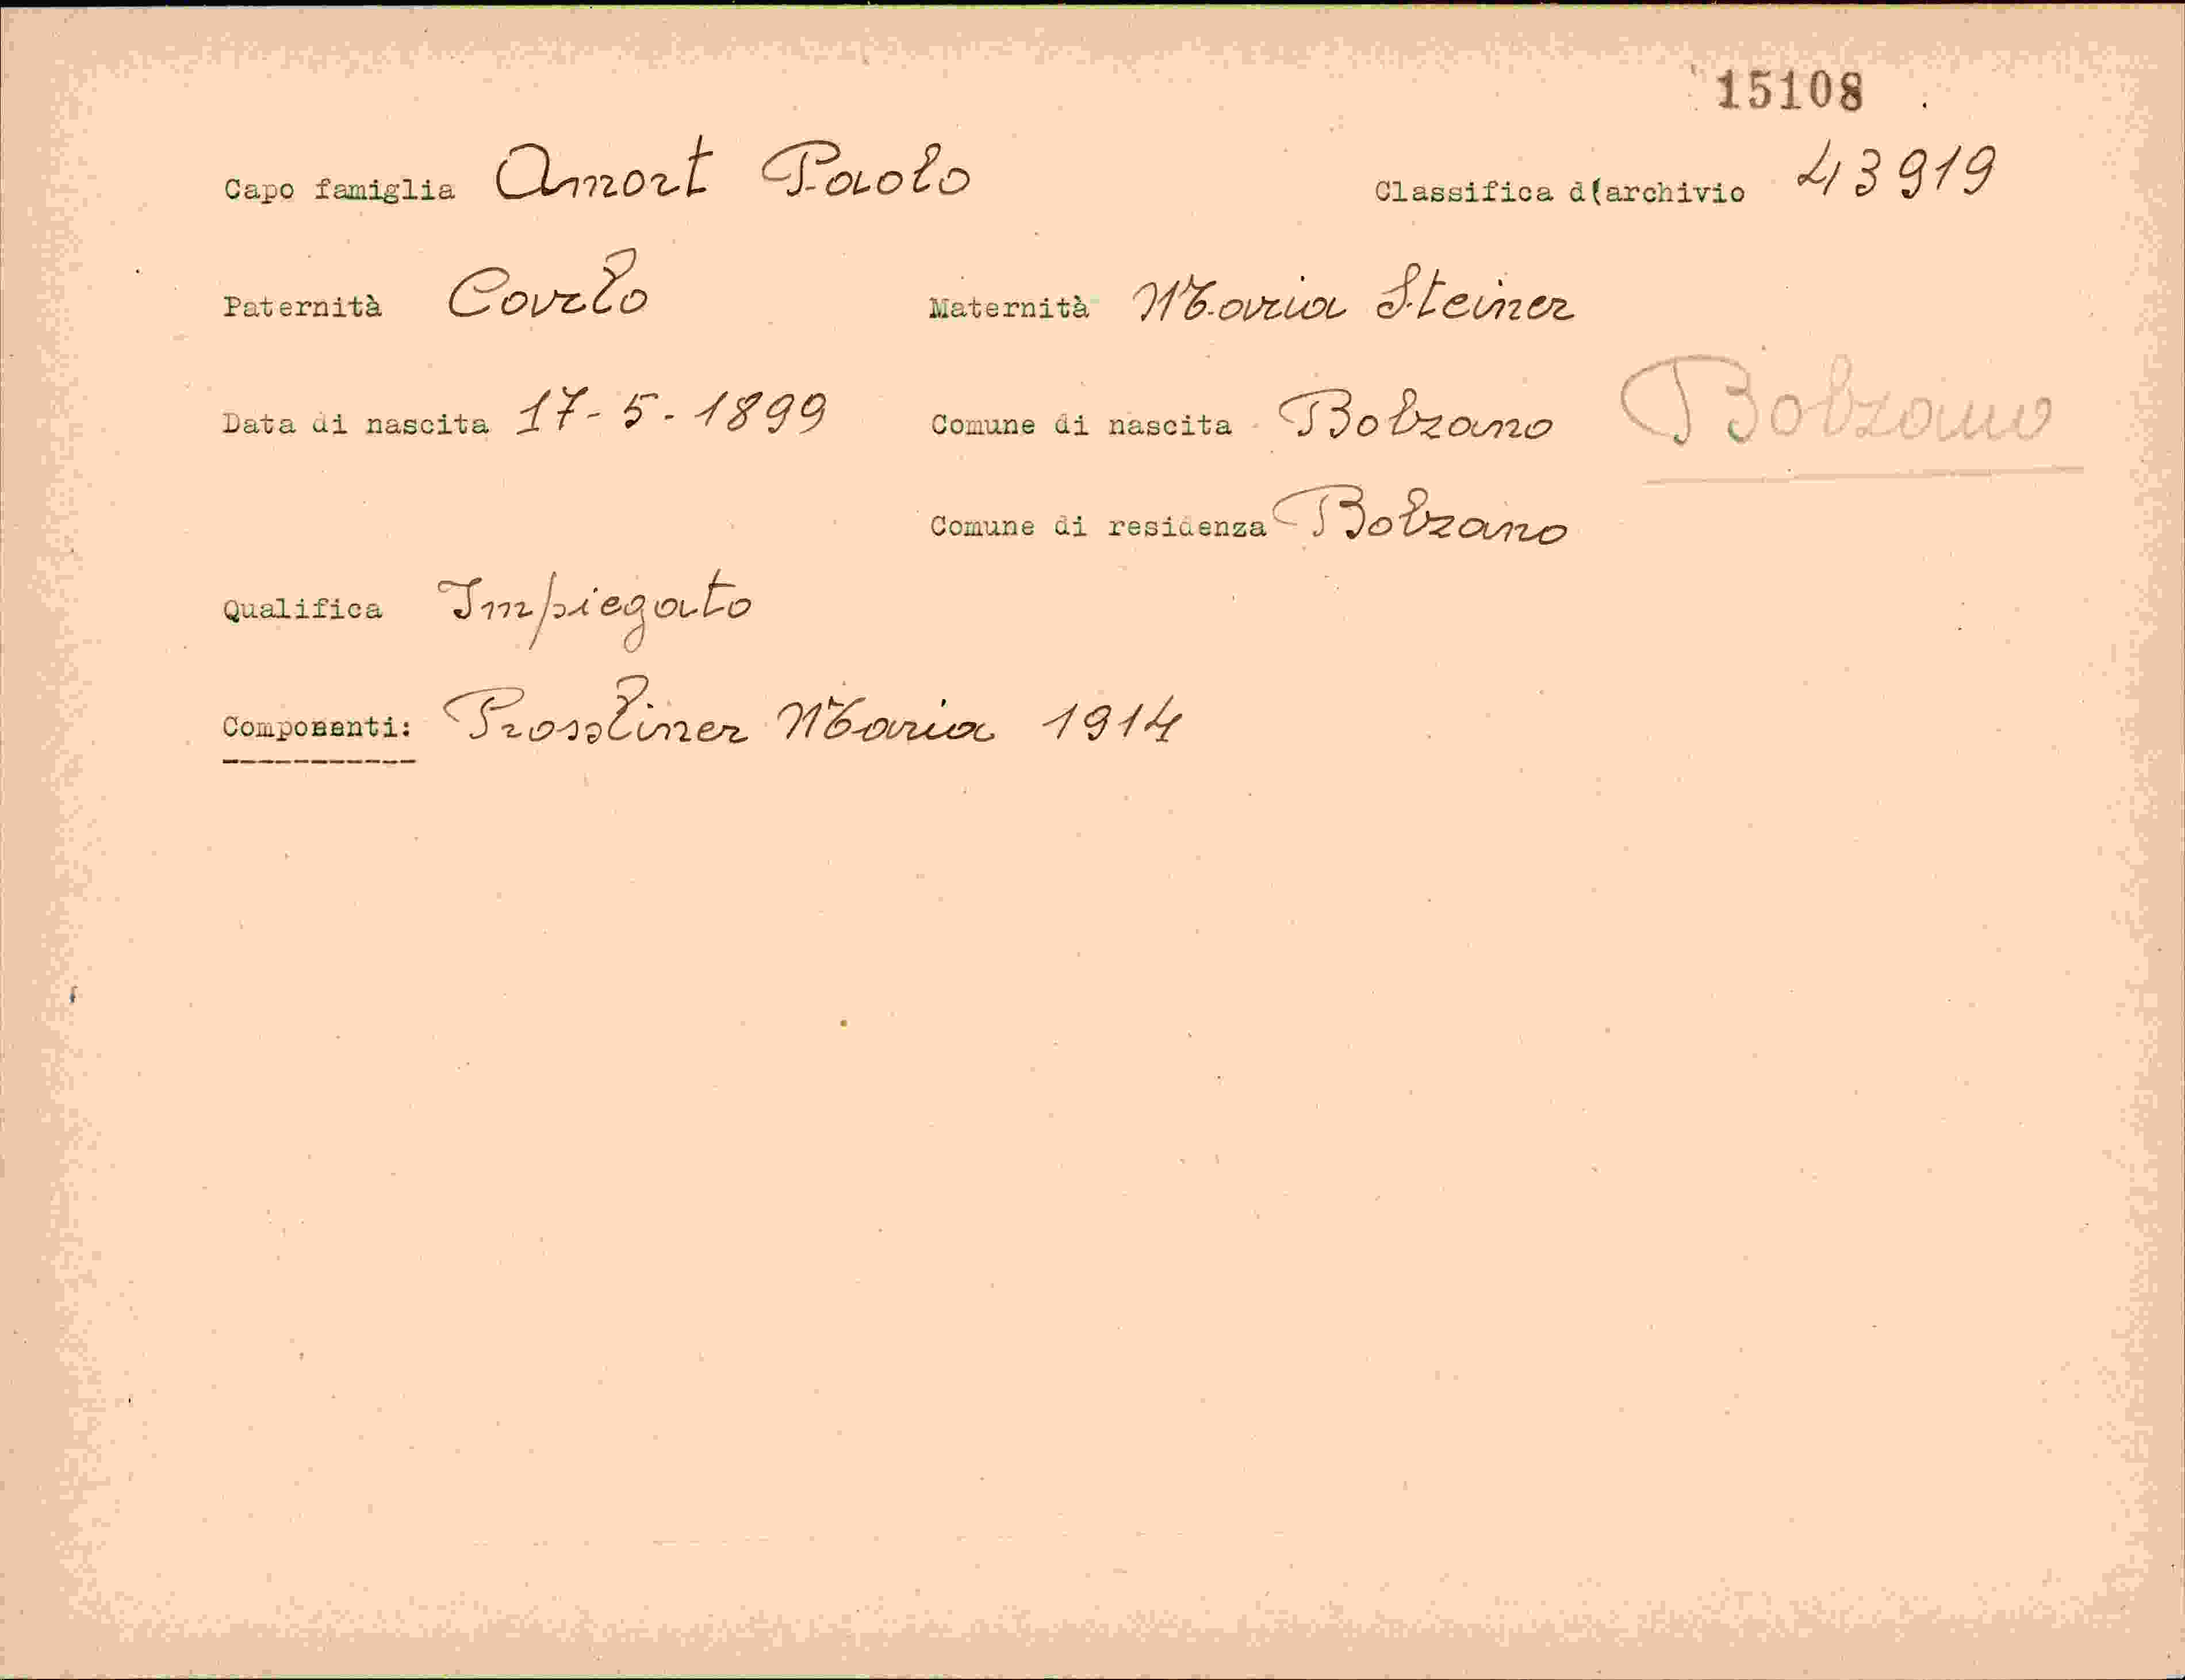 15108
Capo famiglia Amort Paolo Classifica d(archivio 43919
Paternità Carlo Maternità Maria Steiner
Data di nascita 17-5-1899 Comune di nascita Bolzano Bolzano
Comune di residenza Bolzano
Qualifica Impiegato
Componenti: Prossliner Maria 1914